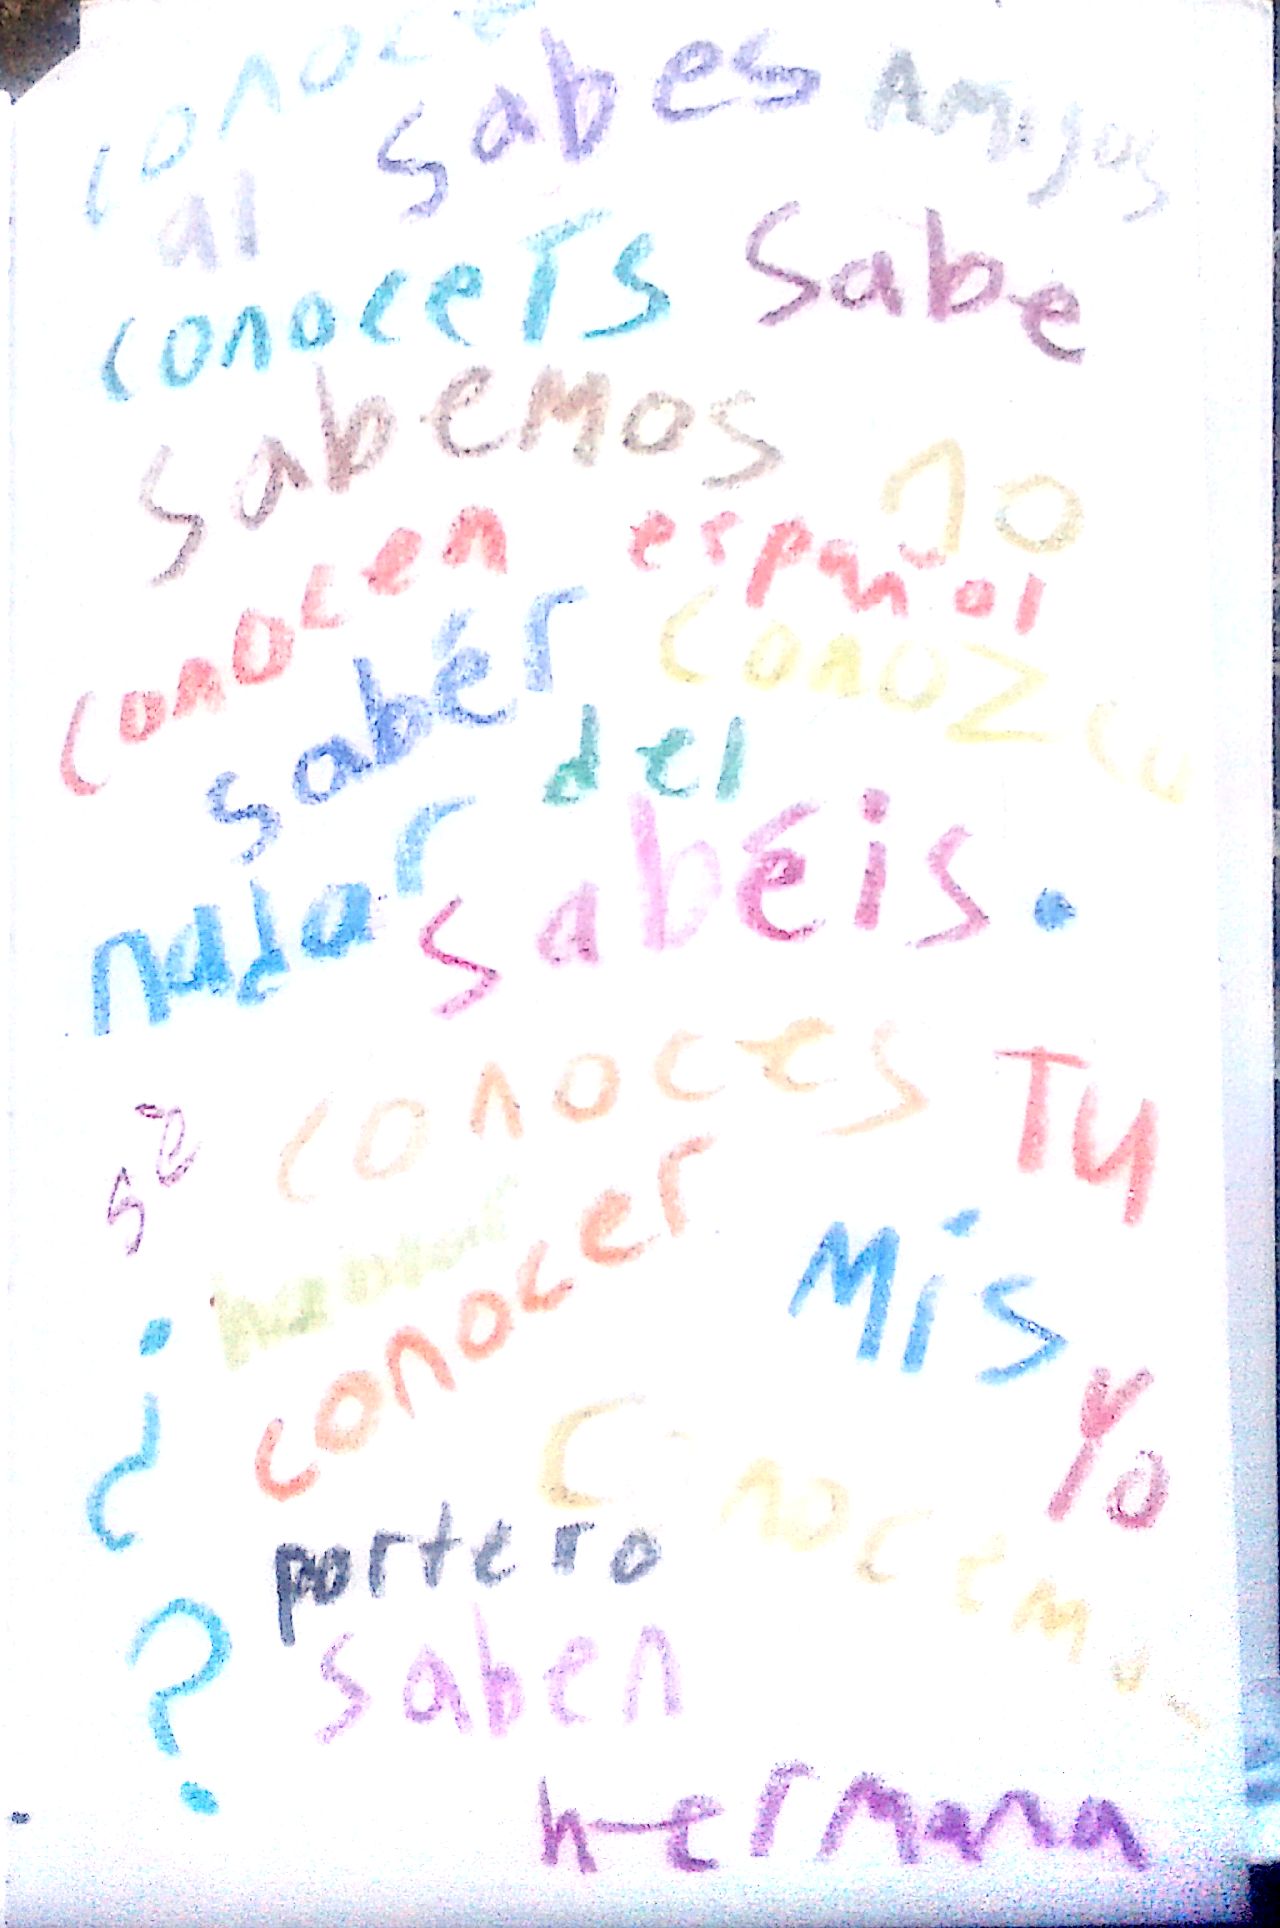 conoce
sabes Amigos
al
conoceis sabe
sabemos
yo
conocen español
saber conozco
del
nadar sabéis .
sé conoces Tu
conocer Mis
¿ Yo
portero conocemos
? saben
hermana